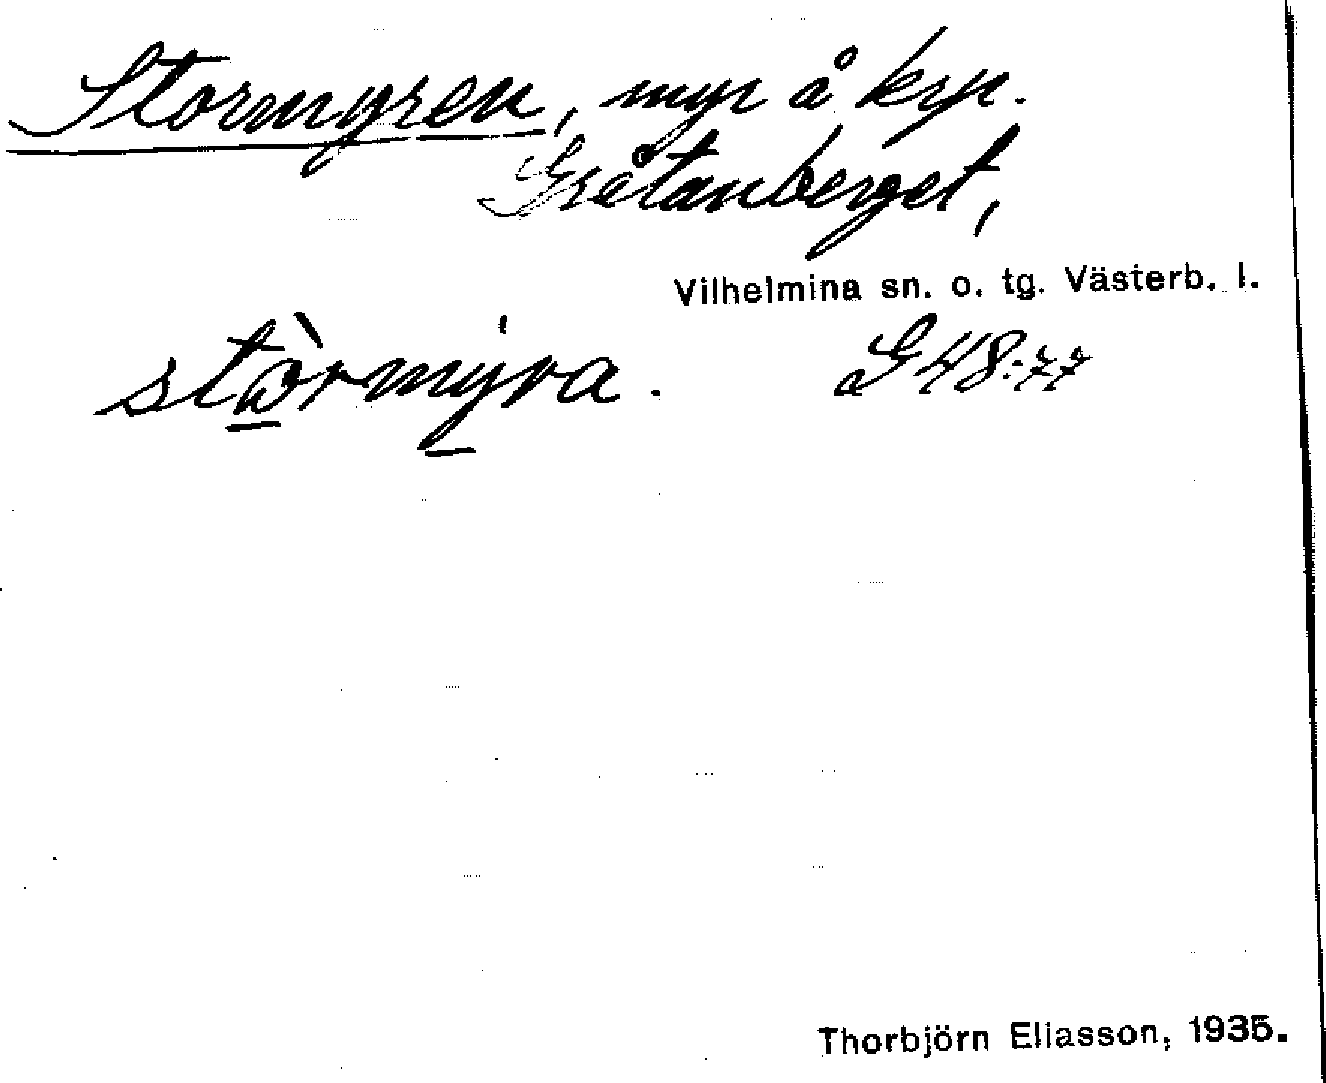 Stormyren, myr å krp.
Gråtanberget,
Vilhelmina sn. o. tg. Västerb. l.
stòrmýra. G48:77
Thorbjörn Eliasson, 1935.